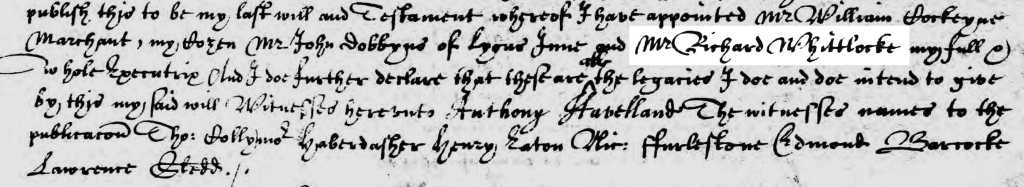 publish this to be my last will and Testament whereof I have appointed Mr William Cockeyne
Marchant, my Cozen Mr John Dobbyns of Lyons Inne and Mr Richard Whittlocke my full &
whole Executrix And I doe further declare that these are all the legacies I doe and doe intend to give
by this my said will Witnesses hereunto Anthony Havelland The witnesses names to the
publicacon Tho: Collyns Haberdasher Henry Eaton Nic: ffurlestone Edmond Barcocke
Lawrence Stedd